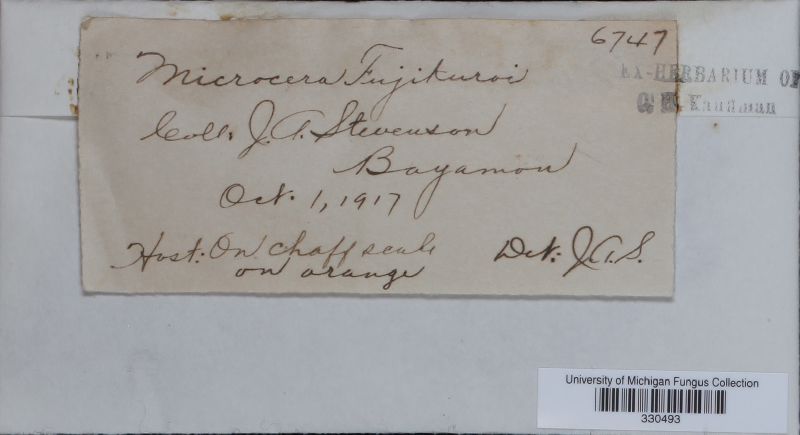 6747
Microcera Fujikuroi
EX-HERBARIUM OF
C. H. Kauffman
Coll. J. A. Stevenson
Bayamon
Oct. 1, 1917
Host: On chaff scale
on orange
Det: J.A.S.
University of Michigan Fungus Collection
330493